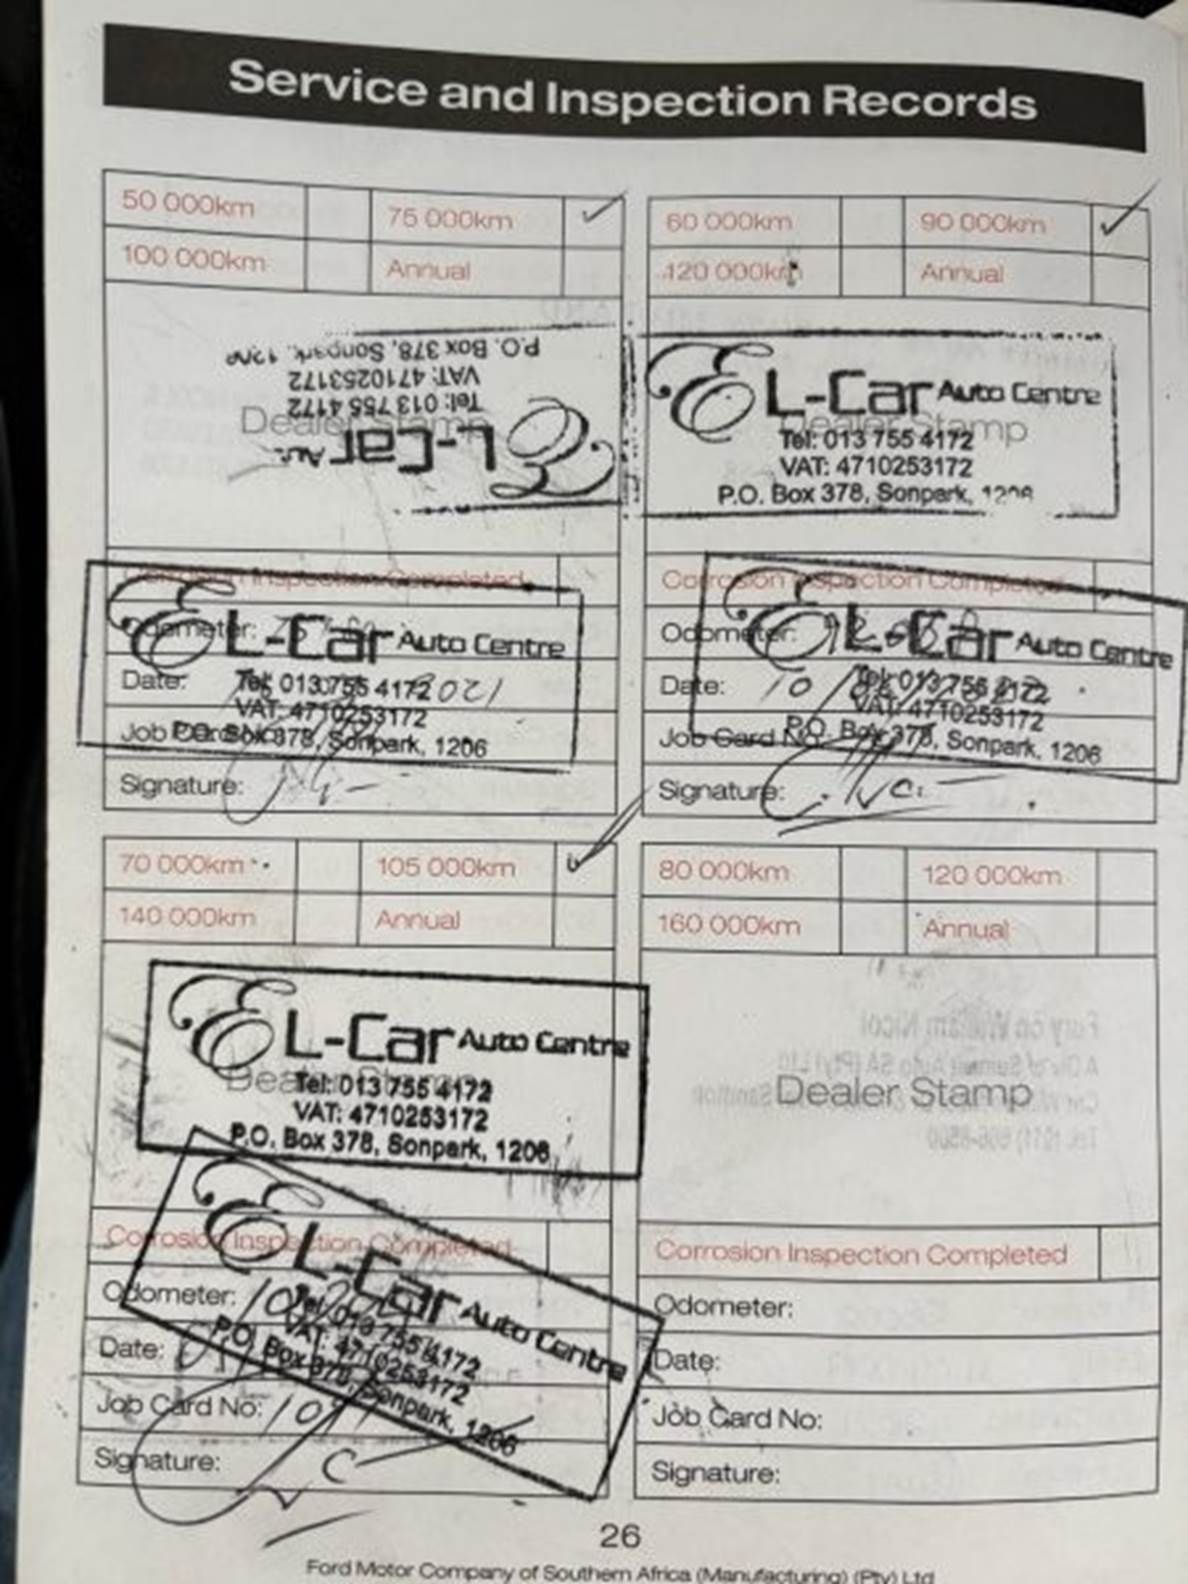 Service and Inspection Records
50 000km
75 000km
100 000km
Annual
P.O. Box 378, Sonpark,
VAT: 4710253172
Tel: 013 755 4172
Dealer Stamp
L-Car
Corrosion Inspection Completed
Odometer:
L-Car Auto Centre
Date: 2021
Tel: 013 755 4172
VAT: 4710253172
P.O. Box 378, Sonpark, 1206
Job
Signature:
60 000km
90 000km
120 000km
Annual
EL-Car Auto Centre
Dealer Stamp
Tel: 013 755 4172
VAT: 4710253172
P.O. Box 378, Sonpark,
Corrosion Inspection Completed
Odometer:
EL-Car Auto Centre
Date: 10
Tel: 013 755 4172
VAT: 4710253172
Job Card No:
P.O. Box 378, Sonpark, 1206
Signature:
70 000km
105 000km
140 000km
Annual
EL-Car Auto Centre
Dealer Stamp
Tel: 013 755 4172
VAT: 4710253172
P.O. Box 378, Sonpark, 1206
Corrosion Inspection Completed
EL-Car Auto Centre
Odometer:
Tel: 013 755 4172
VAT: 4710253172
P.O. Box 378, Sonpark, 1206
Date:
Job Card No:
Signature:
80 000km
120 000km
160 000km
Annual
Dealer Stamp
Corrosion Inspection Completed
Odometer:
Date:
Job Card No:
Signature:
26
Ford Motor Company of Southern Africa (Manufacturing) (Pty) Ltd